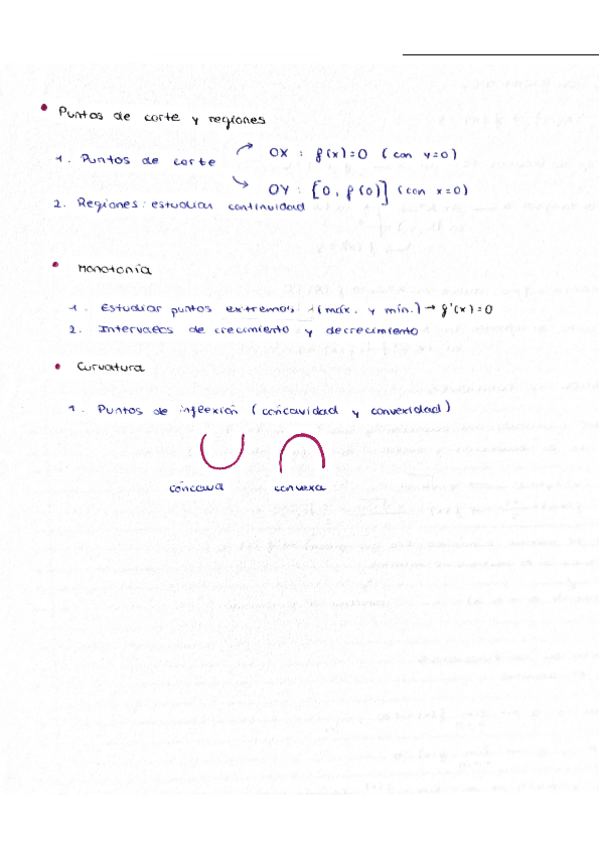 • Puntos de corte y regiones
1. Puntos de corte
OX : f(x)=0 (con y=0)
OY : [0, f(0)] (con x=0)
2. Regiones: estudiar continuidad
• Monotonía
1. Estudiar puntos extremos (máx. y mín.) → f'(x)=0
2. Intervalos de crecimiento y decrecimiento
• Curvatura
1. Puntos de inflexión (concavidad y convexidad)
cóncava convexa